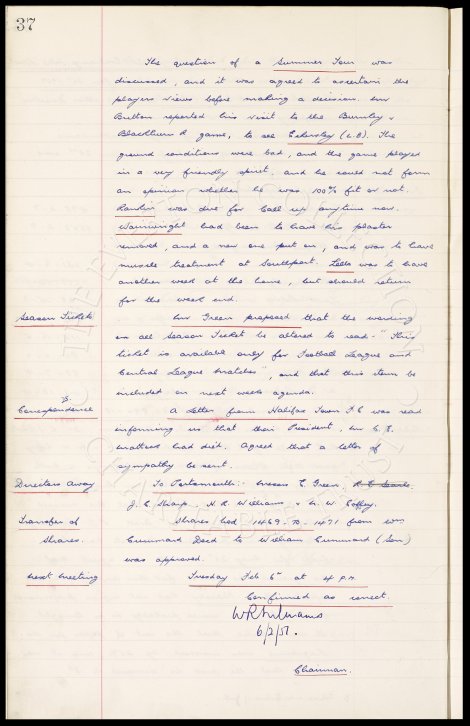 37
The question of a Summer Tour was
discussed, and it was agreed to ascertain the
players views before making a decision. Mr
Britton reported his visit to the Burnley v
Blackburn R game, to see Eckersley (L.B). The
ground conditions were bad, and the game played
in a very friendly spirit, and he could not form
an opinion whether he was 100% fit or not.
Rankin was due for Call up anytime now.
Wainwright had been to have his plaster
removed, and a new one put on, and was to have
muscle treatment at Southport. Lello was to have
another week at the home, but should return
for the week end.
Season Tickets Mr Green proposed that the wording
on all Season Ticket be altered to read - "This
ticket is available only for Football League and
Central League Matches", and that this item be
included on next weeks agenda.
Correspondence A Letter from Halifax Town F.C was read
informing us that their President, Mr C.E.
had died. Agreed that a letter of
sympathy be sent.
Directors Away To Portsmouth:- Messrs C. Green, R.E. Searle
J.C. Sharp. H.R. Williams & N. W. Coffey.
Transfer of Shares Nos 1469-70-1471 from Wm
Shares. Cummard Decd to William Cummard (Son)
was approved.
Next Meeting Tuesday Feb 6th at 4 P.M.
Confirmed as correct
WR Williams
6/2/51.
Chairman.